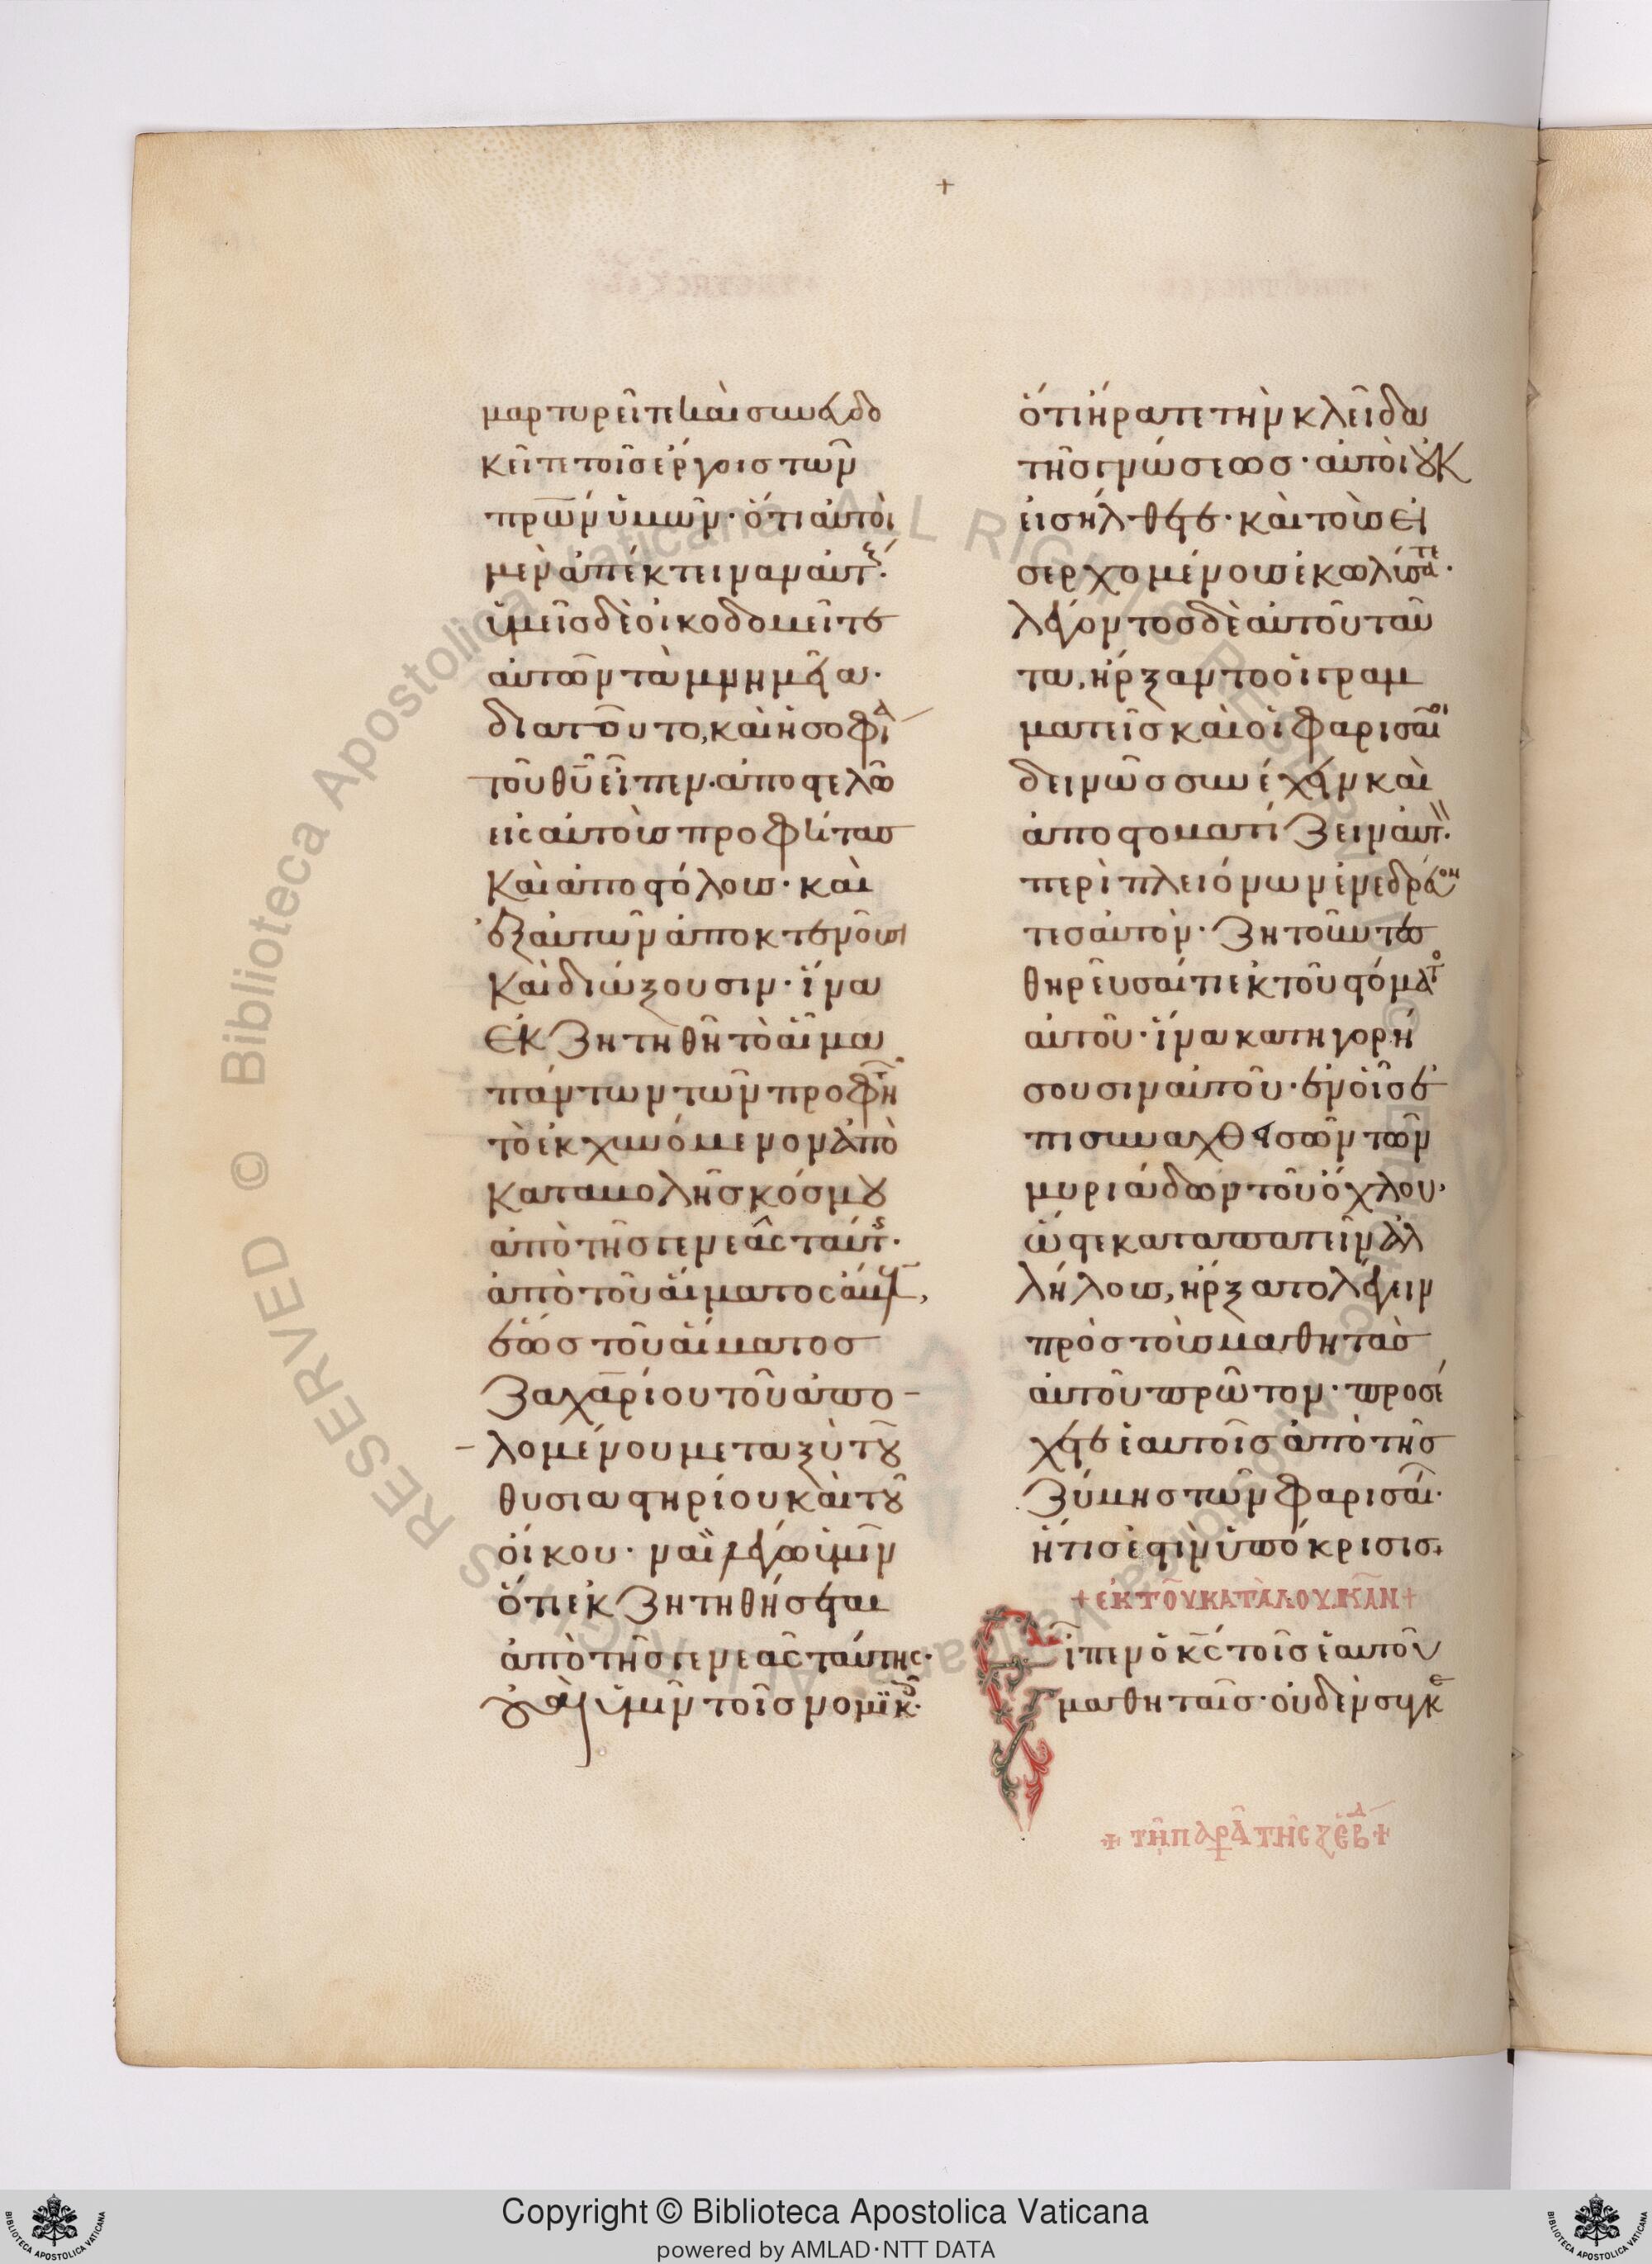 +
μαρτυρεῖτε καὶ συνευδο
κεῖτε τοῖς ἔργοις τῶν
πρων ὑμῶν· ὅτι αὐτοὶ
μὲν ἀπέκτειναν αὐτ·
ὑμεῖς δὲ οἰκοδομεῖτε
αὐτῶν τὰ μνημεῖα·
διατοῦτο, καὶ ἡ σοφί
τοῦ θῦ εἶπεν· ἀποστελῶ
εἰς αὐτοὺς προφήτας
καὶ ἀποστόλους· καὶ
ἐξ αὐτῶν ἀποκτενοῦσι
καὶ διώξουσιν· ἵνα
ἐκζητηθῆ τὸ αἷμα
πάντων τῶν προφη
τὸ ἐκχυνόμενον ἀπὸ
καταβολῆς κόσμου
ἀπὸ τῆς γενεᾶς ταύτ·
ἀπὸ τοῦ αἵματος ἄβελ,
ἕως τοῦ αἵματος
ζαχαρίου τοῦ ἀπο
λομένου μεταξὺ τοῦ
θυσιαστηρίου καὶ τοῦ
οἴκου· ναὶ λέγω ὑμῖν
ὅτι ἐκζητηθήσεται
ἀπὸ τῆς γενεᾶς ταύτης·
οὐαὶ ὑμῖν τοῖς νομικ·
ὅτι ἤρατε τὴν κλεῖδα
τῆς γνώσεως· αὐτοὶ οὐκ
εἰσήλθετε· καὶ τοὺς εἰ
σερχομένους ἐκωλύσατε·
λέγοντος δὲ αὐτοῦ ταῦ
τα, ἤρξαντο οἱ γραμ
ματεῖς καὶ οἱ φαρισαῖοι
δεινῶς συνέχειν καὶ
ἀποστοματίζειν αὐτ·
περὶ πλειόνων ἐνεδρεύον
τες αὐτὸν· ζητοῦντες
θηρεῦσαί τι ἐκ τοῦ στόματο
αὐτοῦ· ἵνα κατηγορή
σουσιν αὐτοῦ· ἐν οἷς ἐ
πισυναχθεισῶν τῶν
μυριάδων τοῦ ὄχλου,
ὥστε καταπατεῖν ἀλ
λήλους, ἤρξατο λέγειν
πρὸς τοὺς μαθητὰς
αὐτοῦ πρῶτον· προσέ
χετε ἑαυτοῖς ἀπὸ τῆς
ζύμης τῶν φαρισαί·
ἥτις ἐστὶν ὑπόκρισις·
+ ἐκ τοῦ κατὰ λουκᾶν +
Εἶπεν ὁ κς τοῖς ἑαυτοῦ
μαθηταῖς· οὐδὲν συγκε
+ τῆ παρα τῆς γ ἑβδ +
© Biblioteca Apostolica Vaticana ALL RIGHTS RESERVED
Copyright © Biblioteca Apostolica Vaticana
powered by AMLAD·NTT DATA
BIBLIOTECA APOSTOLICA VATICANA
BIBLIOTECA APOSTOLICA VATICANA